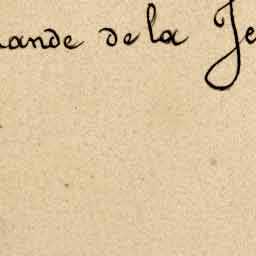 ande de la Je